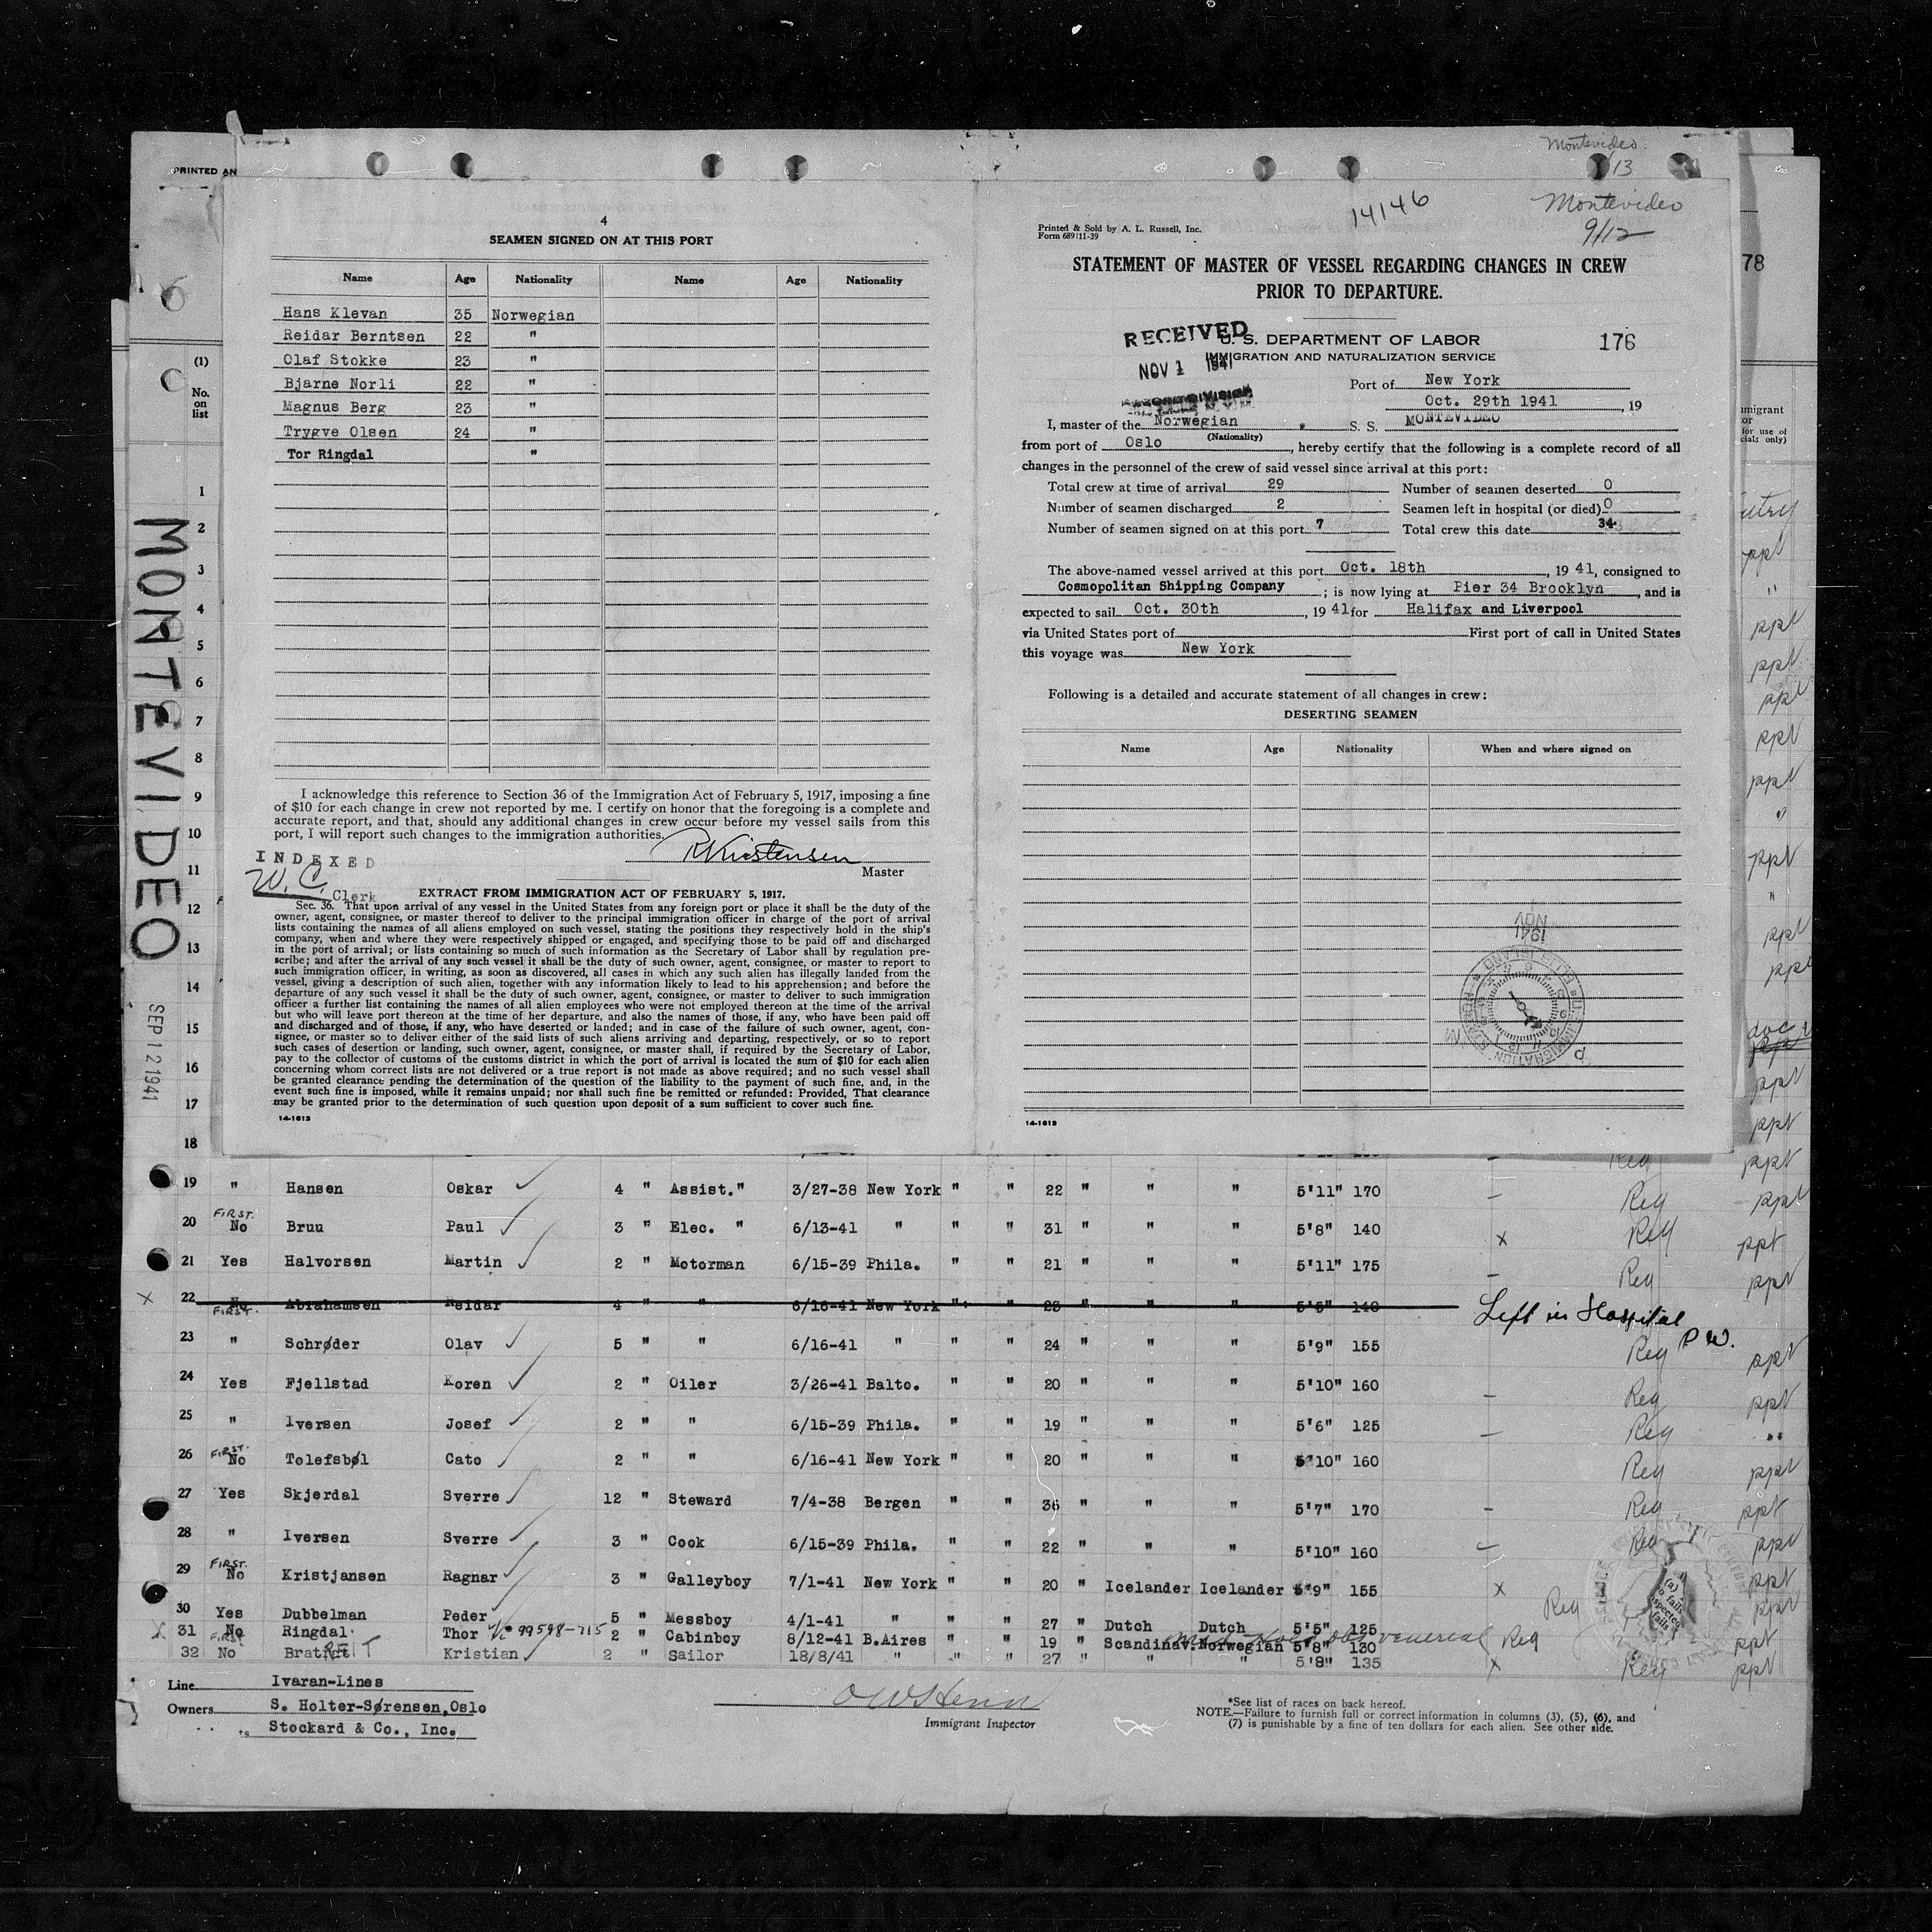 PRINTED AN
4
SEAMEN SIGNED ON AT THIS PORT
Name Age Nationality Name Age Nationality
Hans Klevan 35 Norwegian
Reidar Berntsen 22 "
Olaf Stokke 23 "
Bjarne Norli 22 "
Magnus Berg 23 "
Trygve Olsen 24 "
Tor Ringdal "
I acknowledge this reference to Section 36 of the Immigration Act of February 5, 1917, imposing a fine
of $10 for each change in crew not reported by me. I certify on honor that the foregoing is a complete and
accurate report, and that, should any additional changes in crew occur before my vessel sails from this
port, I will report such changes to the immigration authorities.
RKristensen
Master
INDEXED
W. C. Clerk
EXTRACT FROM IMMIGRATION ACT OF FEBRUARY 5, 1917.
Sec. 36. That upon arrival of any vessel in the United States from any foreign port or place it shall be the duty of the
owner, agent, consignee, or master thereof to deliver to the principal immigration officer in charge of the port of arrival
lists containing the names of all aliens employed on such vessel, stating the positions they respectively hold in the ship's
company, when and where they were respectively shipped or engaged, and specifying those to be paid off and discharged
in the port of arrival; or lists containing so much of such information as the Secretary of Labor shall by regulation pre-
scribe; and after the arrival of any such vessel it shall be the duty of such owner, agent, consignee, or master to report to
such immigration officer, in writing, as soon as discovered, all cases in which any such alien has illegally landed from the
vessel, giving a description of such alien, together with any information likely to lead to his apprehension; and before the
departure of any such vessel it shall be the duty of such owner, agent, consignee, or master to deliver to such immigration
officer a further list containing the names of all alien employees who were not employed thereon at the time of the arrival
but who will leave port thereon at the time of her departure, and also the names of those, if any, who have been paid off
and discharged and of those, if any, who have deserted or landed; and in case of the failure of such owner, agent, con-
signee, or master so to deliver either of the said lists of such aliens arriving and departing, respectively, or so to report
such cases of desertion or landing, such owner, agent, consignee, or master shall, if required by the Secretary of Labor,
pay to the collector of customs of the customs district in which the port of arrival is located the sum of $10 for each alien
concerning whom correct lists are not delivered or a true report is not made as above required; and no such vessel shall
be granted clearance pending the determination of the question of the liability to the payment of such fine, and, in the
event such fine is imposed, while it remains unpaid; nor shall such fine be remitted or refunded: Provided, That clearance
may be granted prior to the determination of such question upon deposit of a sum sufficient to cover such fine.
14-1613
Montevideo
13
14146
Montevideo
9/12
Printed & Sold by A. L. Russell, Inc.
Form 689:11-39
STATEMENT OF MASTER OF VESSEL REGARDING CHANGES IN CREW
PRIOR TO DEPARTURE.
RECEIVED
NOV 1 1941
U. S. DEPARTMENT OF LABOR
IMMIGRATION AND NATURALIZATION SERVICE
176
Port of New York
Oct. 29th 1941, 19
I, master of the Norwegian S. S. MONTEVIDEO
(Nationality)
from port of Oslo, hereby certify that the following is a complete record of all
changes in the personnel of the crew of said vessel since arrival at this port:
Total crew at time of arrival 29 Number of seamen deserted 0
Number of seamen discharged 2 Seamen left in hospital (or died) 0
Number of seamen signed on at this port 7 Total crew this date 34
The above-named vessel arrived at this port Oct. 18th, 1941, consigned to
Cosmopolitan Shipping Company; is now lying at Pier 34 Brooklyn, and is
expected to sail Oct. 30th, 1941 for Halifax and Liverpool
via United States port of First port of call in United States
this voyage was New York
Following is a detailed and accurate statement of all changes in crew:
DESERTING SEAMEN
Name Age Nationality When and where signed on
NOV
1941
14-1613
78
MONTEVIDEO
SEP 12 1941
(1)
No.
on
list
1
2
3
4
5
6
7
8
9
10
11
12
13
14
15
16
17
18
19 " Hansen Oskar 4 " Assist." 3/27-38 New York " " 22 " " " 5'11" 170 - Reg ppt
20 FIRST. No Bruu Paul 3 " Elec. " 6/13-41 " " " 31 " " " 5'8" 140 x Reg ppt
21 Yes Halvorsen Martin 2 " Motorman 6/15-39 Phila. " " 21 " " " 5'11" 175 - Reg ppt
x 22 No FIRST. Abrahamsen Reidar 4 " " 6/16-41 New York " " 23 " " 5'5" 140 Left in Hospital
P W.
23 " Schrøder Olav 5 " " 6/16-41 " " " 24 " " " 5'9" 155 Reg ppt
24 Yes Fjellstad Koren 2 " Oiler 3/26-41 Balto. " " 20 " " " 5'10" 160 - Reg ppt
25 " Iversen Josef 2 " " 6/15-39 Phila. " " 19 " " " 5'6" 125 - Reg "
26 FIRST. No Tolefsbøl Cato 2 " " 6/16-41 New York " " 20 " " " 5'10" 160 Reg ppt
27 Yes Skjerdal Sverre 12 " Steward 7/4-38 Bergen " " 36 " " " 5'7" 170 - Reg ppt
28 " Iversen Sverre 3 " Cook 6/15-39 Phila. " " 22 " " " 5'10" 160 - Reg ppt
29 FIRST. No Kristjansen Ragnar 3 " Galleyboy 7/1-41 New York " " 20 " Icelander Icelander 5'9" 155 x ppt
30 Yes Dubbelman Peder 5 " Messboy 4/1-41 " " " 27 " Dutch Dutch 5'5" 125 Reg ppt
x 31 No FIRST Ringdal Thor 99598-715 2 " Cabinboy 8/12-41 B.Aires " " 19 " Scandinav. Norwegian 5'8" 130 venereal x Reg ppt
32 No Brattet REIT Kristian 2 " Sailor 18/8/41 " " " 27 " " " 5'8" 135 x Reg ppt
Line Ivaran-Lines
Owners S. Holter-Sørensen, Oslo
ts Stockard & Co., Inc.
Immigrant Inspector
*See list of races on back hereof.
NOTE.—Failure to furnish full or correct information in columns (3), (5), (6), and
(7) is punishable by a fine of ten dollars for each alien. See other side.